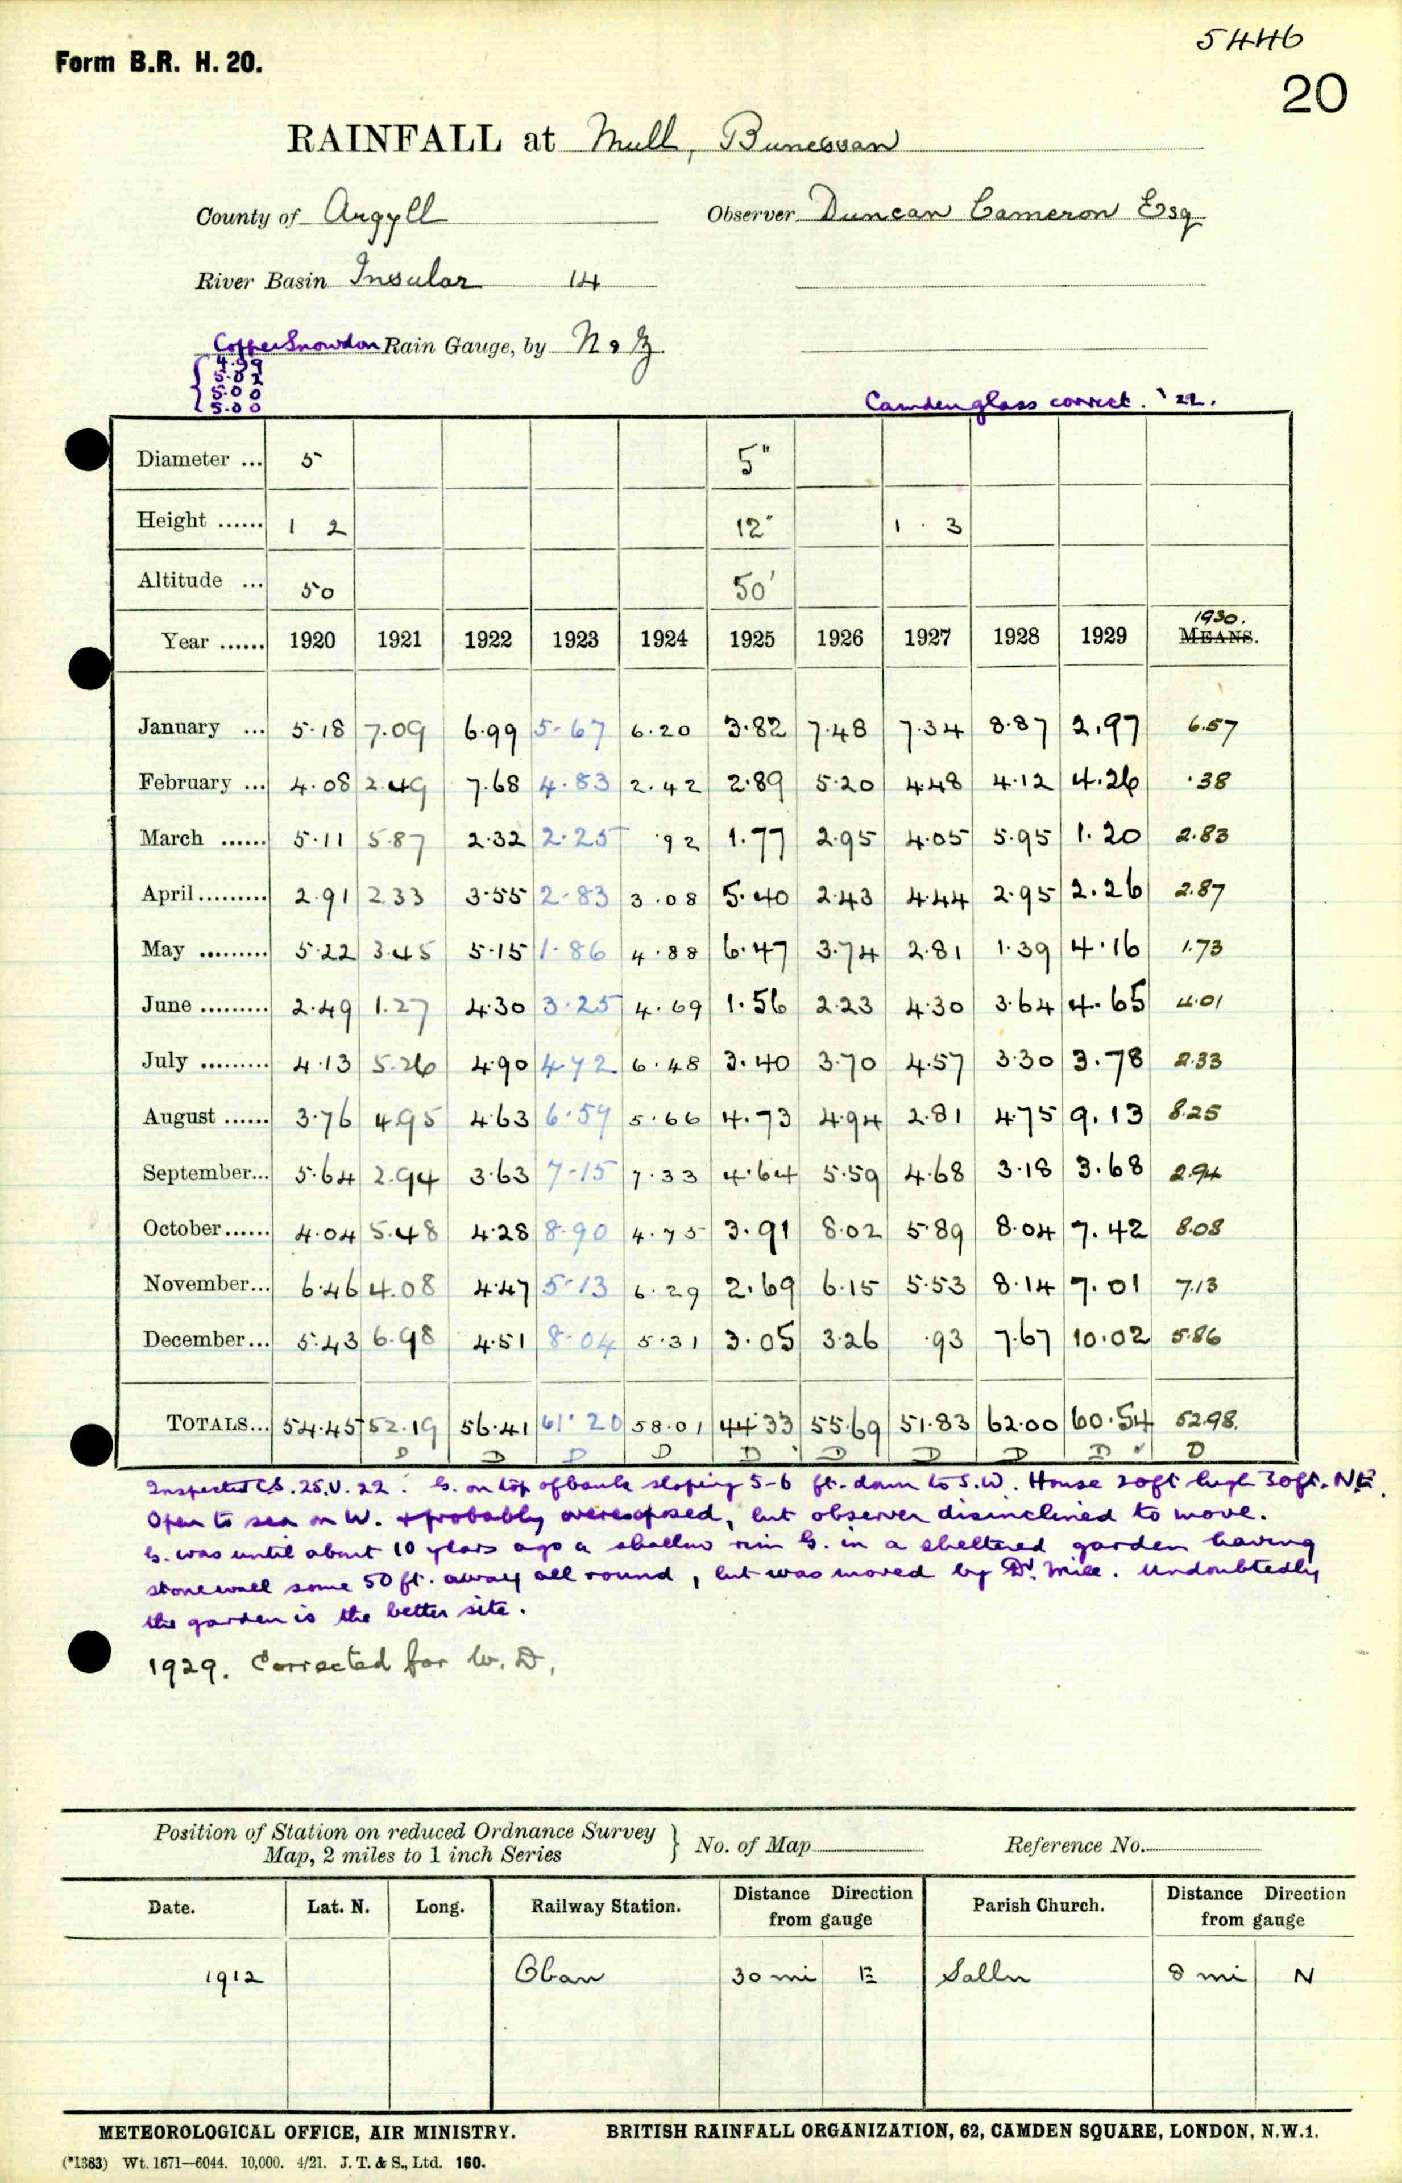 5446
Form B.R. H. 20.
20
RAINFALL at Mull, Bunessan
County of Argyll Observer Duncan Cameron Esq
River Basin Insular 14
Copper Snowdon Rain Gauge, by N & Z
4.99
5.02
5.00
5.00
Camden glass correct. '22.
Diameter ... 5 5"
Height ...... 1 2 12" 1 . 3
Altitude ... 50 50'
1930.
Year ...... 1920 1921 1922 1923 1924 1925 1926 1927 1928 1929 MEANS.
January ... 5.18 7.09 6.99 5.67 6.20 3.82 7.48 7.34 8.87 2.97 6.57
February ... 4.08 2.49 7.68 4.83 2.42 2.89 5.20 4.48 4.12 4.26 .38
March ...... 5.11 5.87 2.32 2.25 .92 1.77 2.95 4.05 5.95 1.20 2.83
April ......... 2.91 2.33 3.55 2.83 3.08 5.40 2.43 4.44 2.95 2.26 2.87
May ......... 5.22 3.45 5.15 1.86 4.88 6.47 3.74 2.81 1.39 4.16 1.73
June ......... 2.49 1.27 4.30 3.25 4.69 1.56 2.23 4.30 3.64 4.65 4.01
July ......... 4.13 5.26 4.90 4.72 6.48 3.40 3.70 4.57 3.30 3.78 2.33
August ...... 3.76 4.95 4.63 6.57 5.66 4.73 4.94 2.81 4.75 9.13 8.25
September... 5.64 2.94 3.63 7.15 7.33 4.64 5.59 4.68 3.18 3.68 2.94
October ...... 4.04 5.48 4.28 8.90 4.75 3.91 8.02 5.89 8.04 7.42 8.08
November... 6.46 4.08 4.47 5.13 6.29 2.69 6.15 5.53 8.14 7.01 7.13
December... 5.43 6.98 4.51 8.04 5.31 3.05 3.26 .93 7.67 10.02 5.86
TOTALS... 54.45 52.19 56.41 61.20 58.01 44.33 55.69 51.83 62.00 60.54 52.98.
D D D D D D D D D D
Inspected C.S. 25.V.22. G. on top of bank sloping 5-6 ft. down to S.W. House 20ft high 30ft. N.E.
Open to sea on W. & probably overexposed, but observer disinclined to move.
G. was until about 10 years ago a shallow rim G. in a sheltered garden having
stone wall some 50 ft. away all round, but was moved by Dr. Mill. Undoubtedly
the garden is the better site.
1929. Corrected for W. D.
Position of Station on reduced Ordnance Survey
Map, 2 miles to 1 inch Series } No. of Map Reference No.
Date. Lat. N. Long. Railway Station. Distance Direction from gauge Parish Church. Distance Direction from gauge
1912 Oban 30 mi E Sallen 8 mi N
METEOROLOGICAL OFFICE, AIR MINISTRY. BRITISH RAINFALL ORGANIZATION, 62, CAMDEN SQUARE, LONDON, N.W.1.
(*1383) Wt. 1671—6044. 10,000. 4/21. J. T. & S., Ltd. 160.